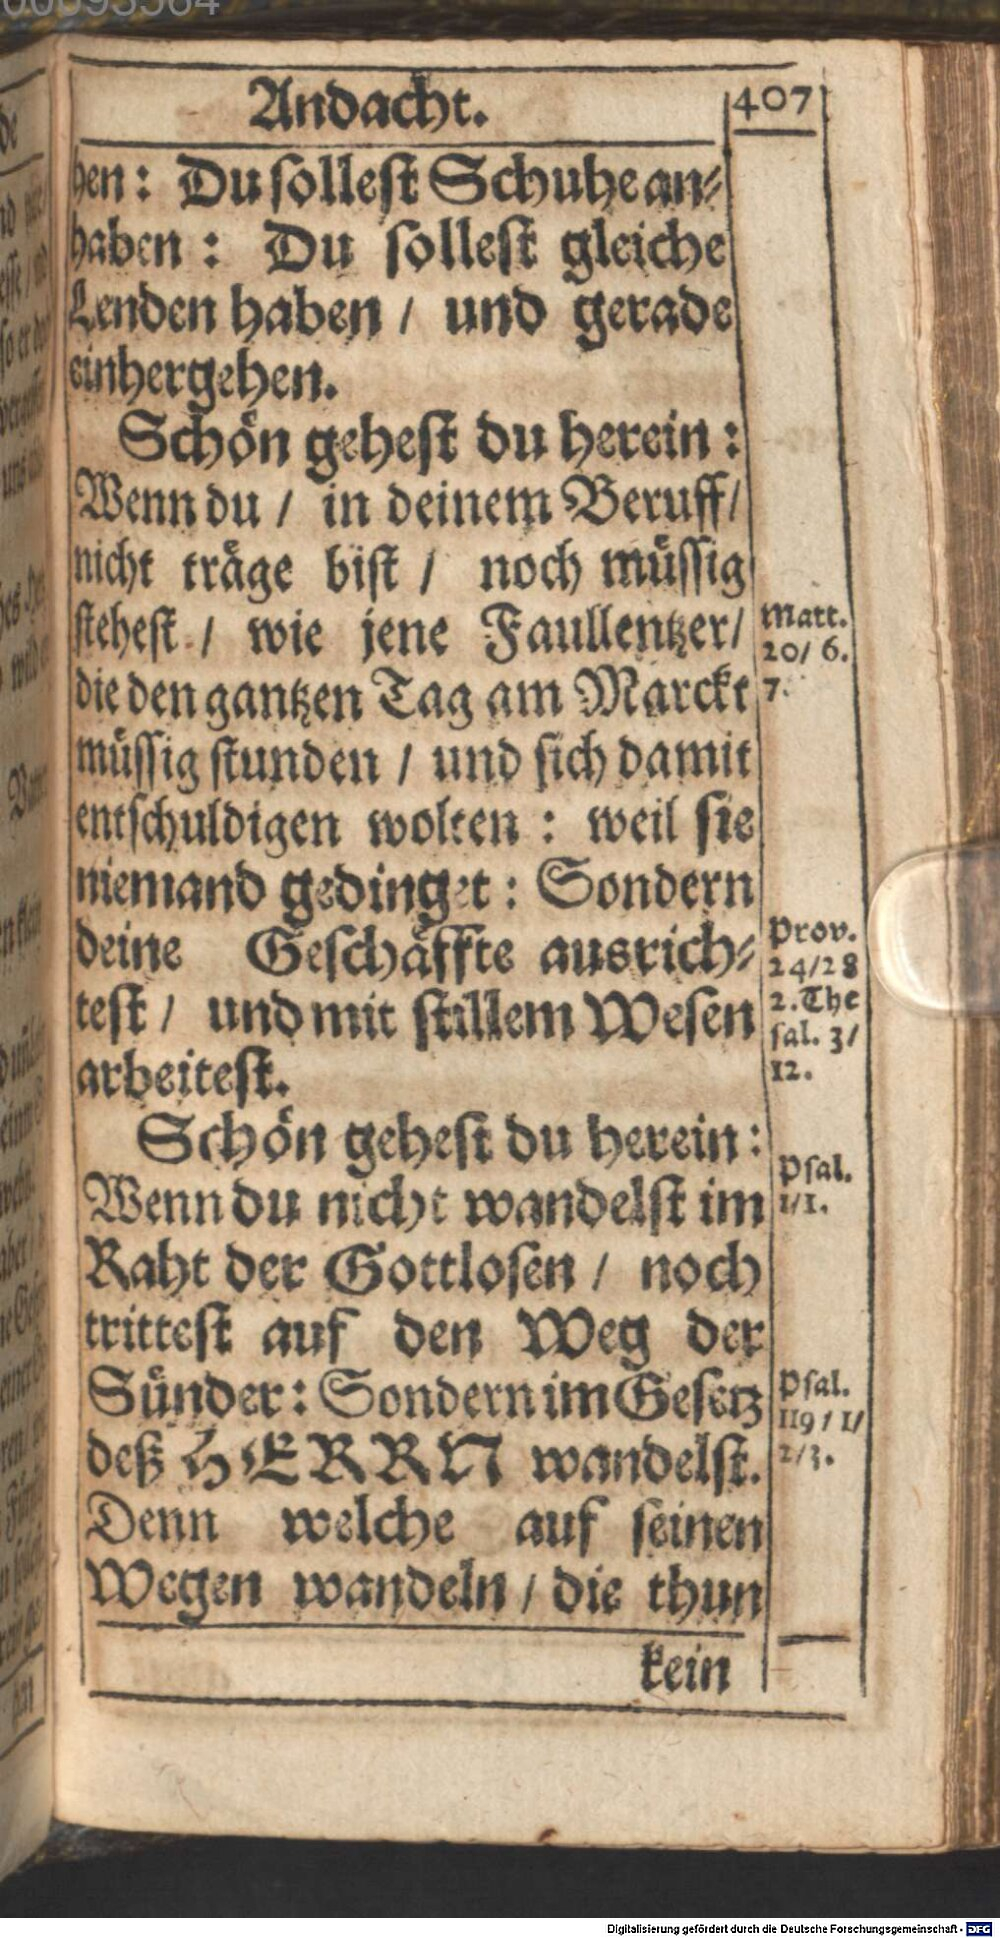 Andacht. 407
hen: Du sollest Schuhe an⸗
haben: Du sollest gleiche
Lenden haben / und gerade
einhergehen.
Schön gehest du herein:
Wenn du / in deinem Beruff /
nicht träge bist / noch müssig
stehest / wie jene Faullentzer /
die den gantzen Tag am Marckt
müssig stunden / und sich damit
entschuldigen wolten: weil sie
niemand gedinget: Sondern
deine Geschäffte ausrich⸗
test / und mit stillem Wesen
arbeitest.
Schön gehest du herein:
Wenn du nicht wandelst im
Raht der Gottlosen / noch
trittest auf den Weg der
Sünder: Sondern im Gesetz
deß HERRN wandelst.
Denn welche auf seinen
Wegen wandeln / die thun
kein
Matt.
20/ 6.
7.
Prov.
24/28
2. The
sal. 3/
12.
Psal.
1/1.
Psal.
119/1/
2/3.
Digitalisierung gefördert durch die Deutsche Forschungsgemeinschaft - DFG